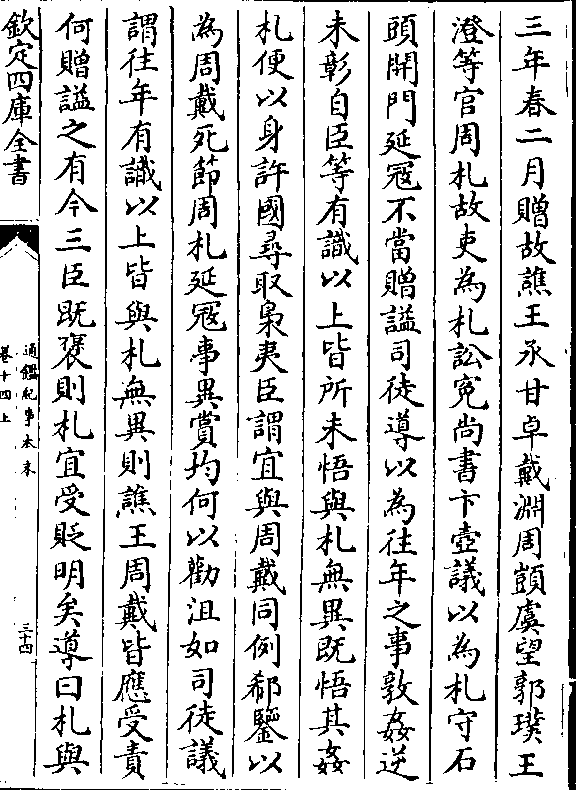 三年春二月贈故譙王承甘卓戴淵周顗虞望郭璞王
澄等官周札故吏為札訟寃尚書卞壼議以為札守石
頭開門延寇不當贈謚司徒導以為往年之事敦姦逆
未彰自臣等有識以上皆所未悟與札無異既悟其姦
札便以身許國尋取梟夷臣謂宜與周戴同例郗鑒以
為周戴死節周札延寇事異賞均何以勸沮如司徒議
謂往年有識以上皆與札無異則譙王周戴皆應受責
何贈謚之有今三臣既褒則札宜受貶明矣導曰札與
欽定四庫全書
通鑑紀事本末
卷十四上
三十四